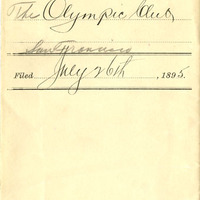 The Olympic Club
San Francisco
Filed July 26th, 1895.